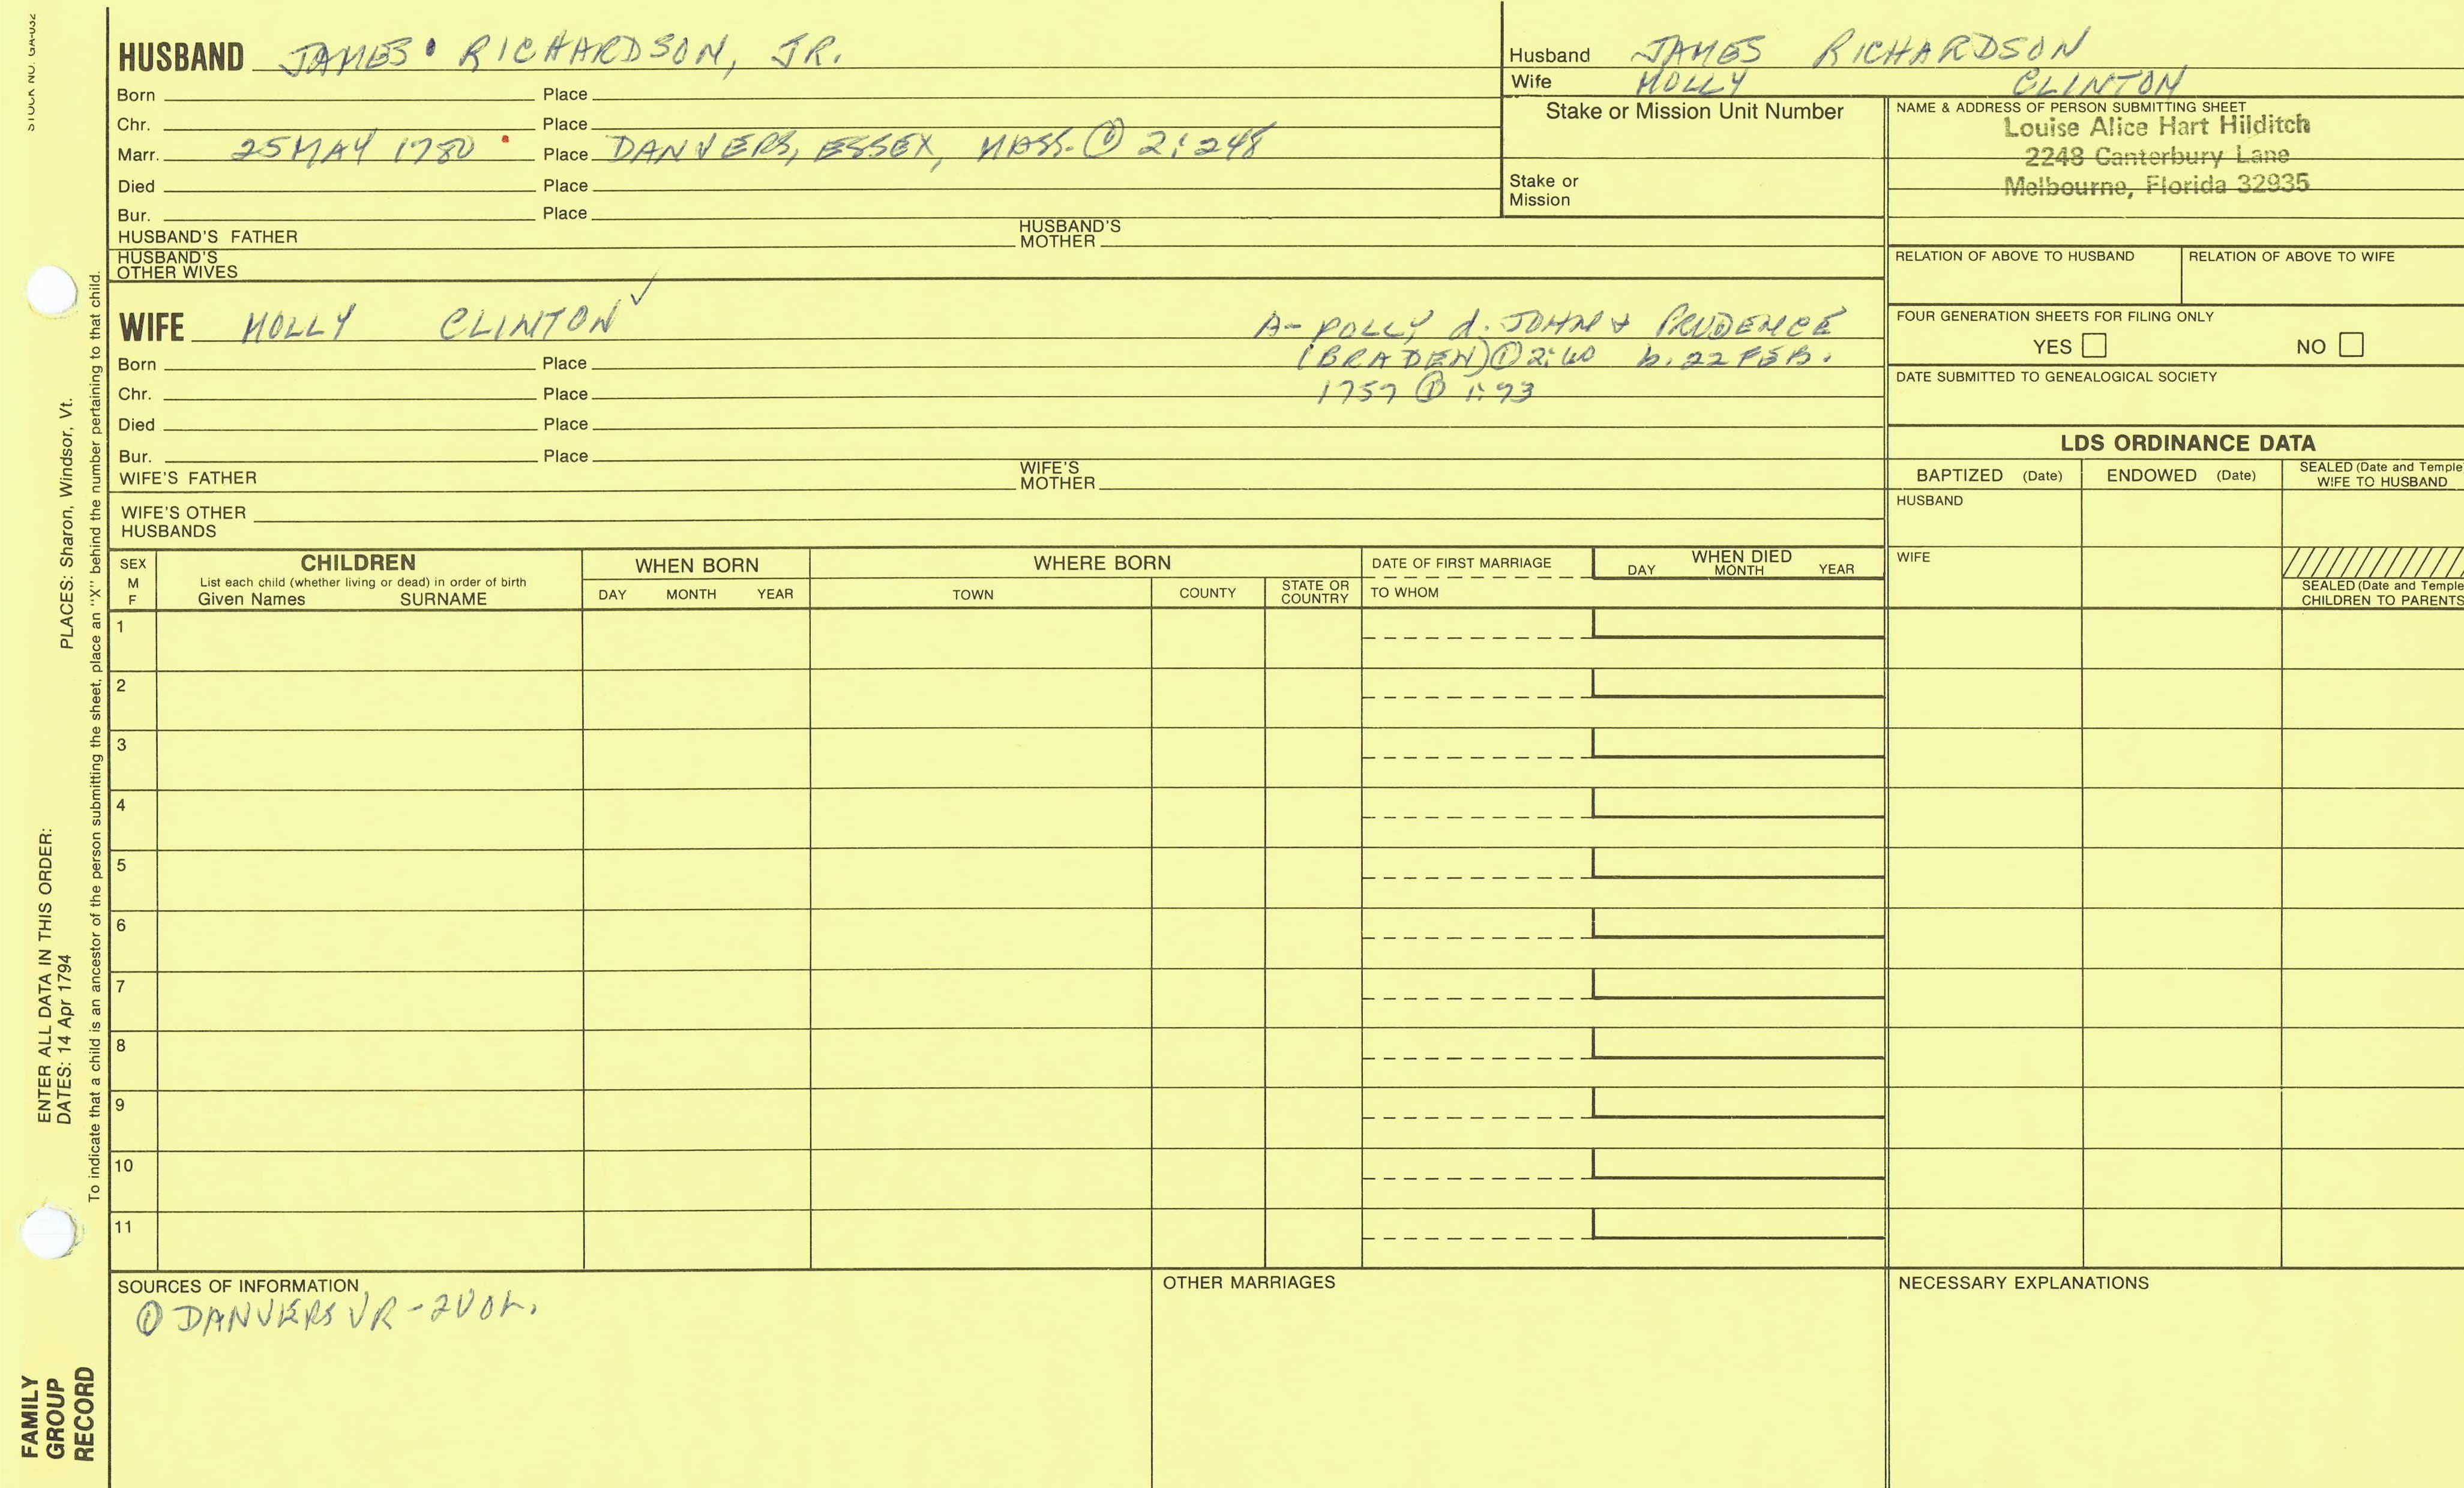 STOCK NO. GA-032
HUSBAND JAMES RICHARDSON, JR.
Born Place
Chr. Place
Marr. 25 MAY 1780 Place DANVERS, ESSEX, MASS. ① 2:248
Died Place
Bur. Place
HUSBAND'S FATHER HUSBAND'S MOTHER
HUSBAND'S
OTHER WIVES
Husband JAMES RICHARDSON
Wife MOLLY CLINTON
Stake or Mission Unit Number
Stake or
Mission
NAME & ADDRESS OF PERSON SUBMITTING SHEET
Louise Alice Hart Hilditch
2248 Canterbury Lane
Melbourne, Florida 32935
RELATION OF ABOVE TO HUSBAND RELATION OF ABOVE TO WIFE
FOUR GENERATION SHEETS FOR FILING ONLY
YES NO
DATE SUBMITTED TO GENEALOGICAL SOCIETY
WIFE MOLLY CLINTON ✓
A- POLLY d. JOHN & PRUDENCE
(BRADEN) ① 2:60 b. 22 FEB.
1757 ① 1:73
Born Place
Chr. Place
Died Place
Bur. Place
WIFE'S FATHER WIFE'S MOTHER
WIFE'S OTHER
HUSBANDS
LDS ORDINANCE DATA
BAPTIZED (Date) ENDOWED (Date) SEALED (Date and Temple
WIFE TO HUSBAND
HUSBAND
WIFE
SEALED (Date and Temple
CHILDREN TO PARENTS
SEX
M
F
CHILDREN
List each child (whether living or dead) in order of birth
Given Names SURNAME
WHEN BORN
DAY MONTH YEAR
WHERE BORN
TOWN COUNTY STATE OR
COUNTRY
DATE OF FIRST MARRIAGE
TO WHOM
WHEN DIED
DAY MONTH YEAR
1
2
3
4
5
6
7
8
9
10
11
SOURCES OF INFORMATION
① DANVERS VR - 2 VOL.
OTHER MARRIAGES
NECESSARY EXPLANATIONS
PLACES: Sharon, Windsor, Vt.
ENTER ALL DATA IN THIS ORDER:
DATES: 14 Apr 1794
To indicate that a child is an ancestor of the person submitting the sheet, place an "X" behind the number pertaining to that child.
FAMILY
GROUP
RECORD